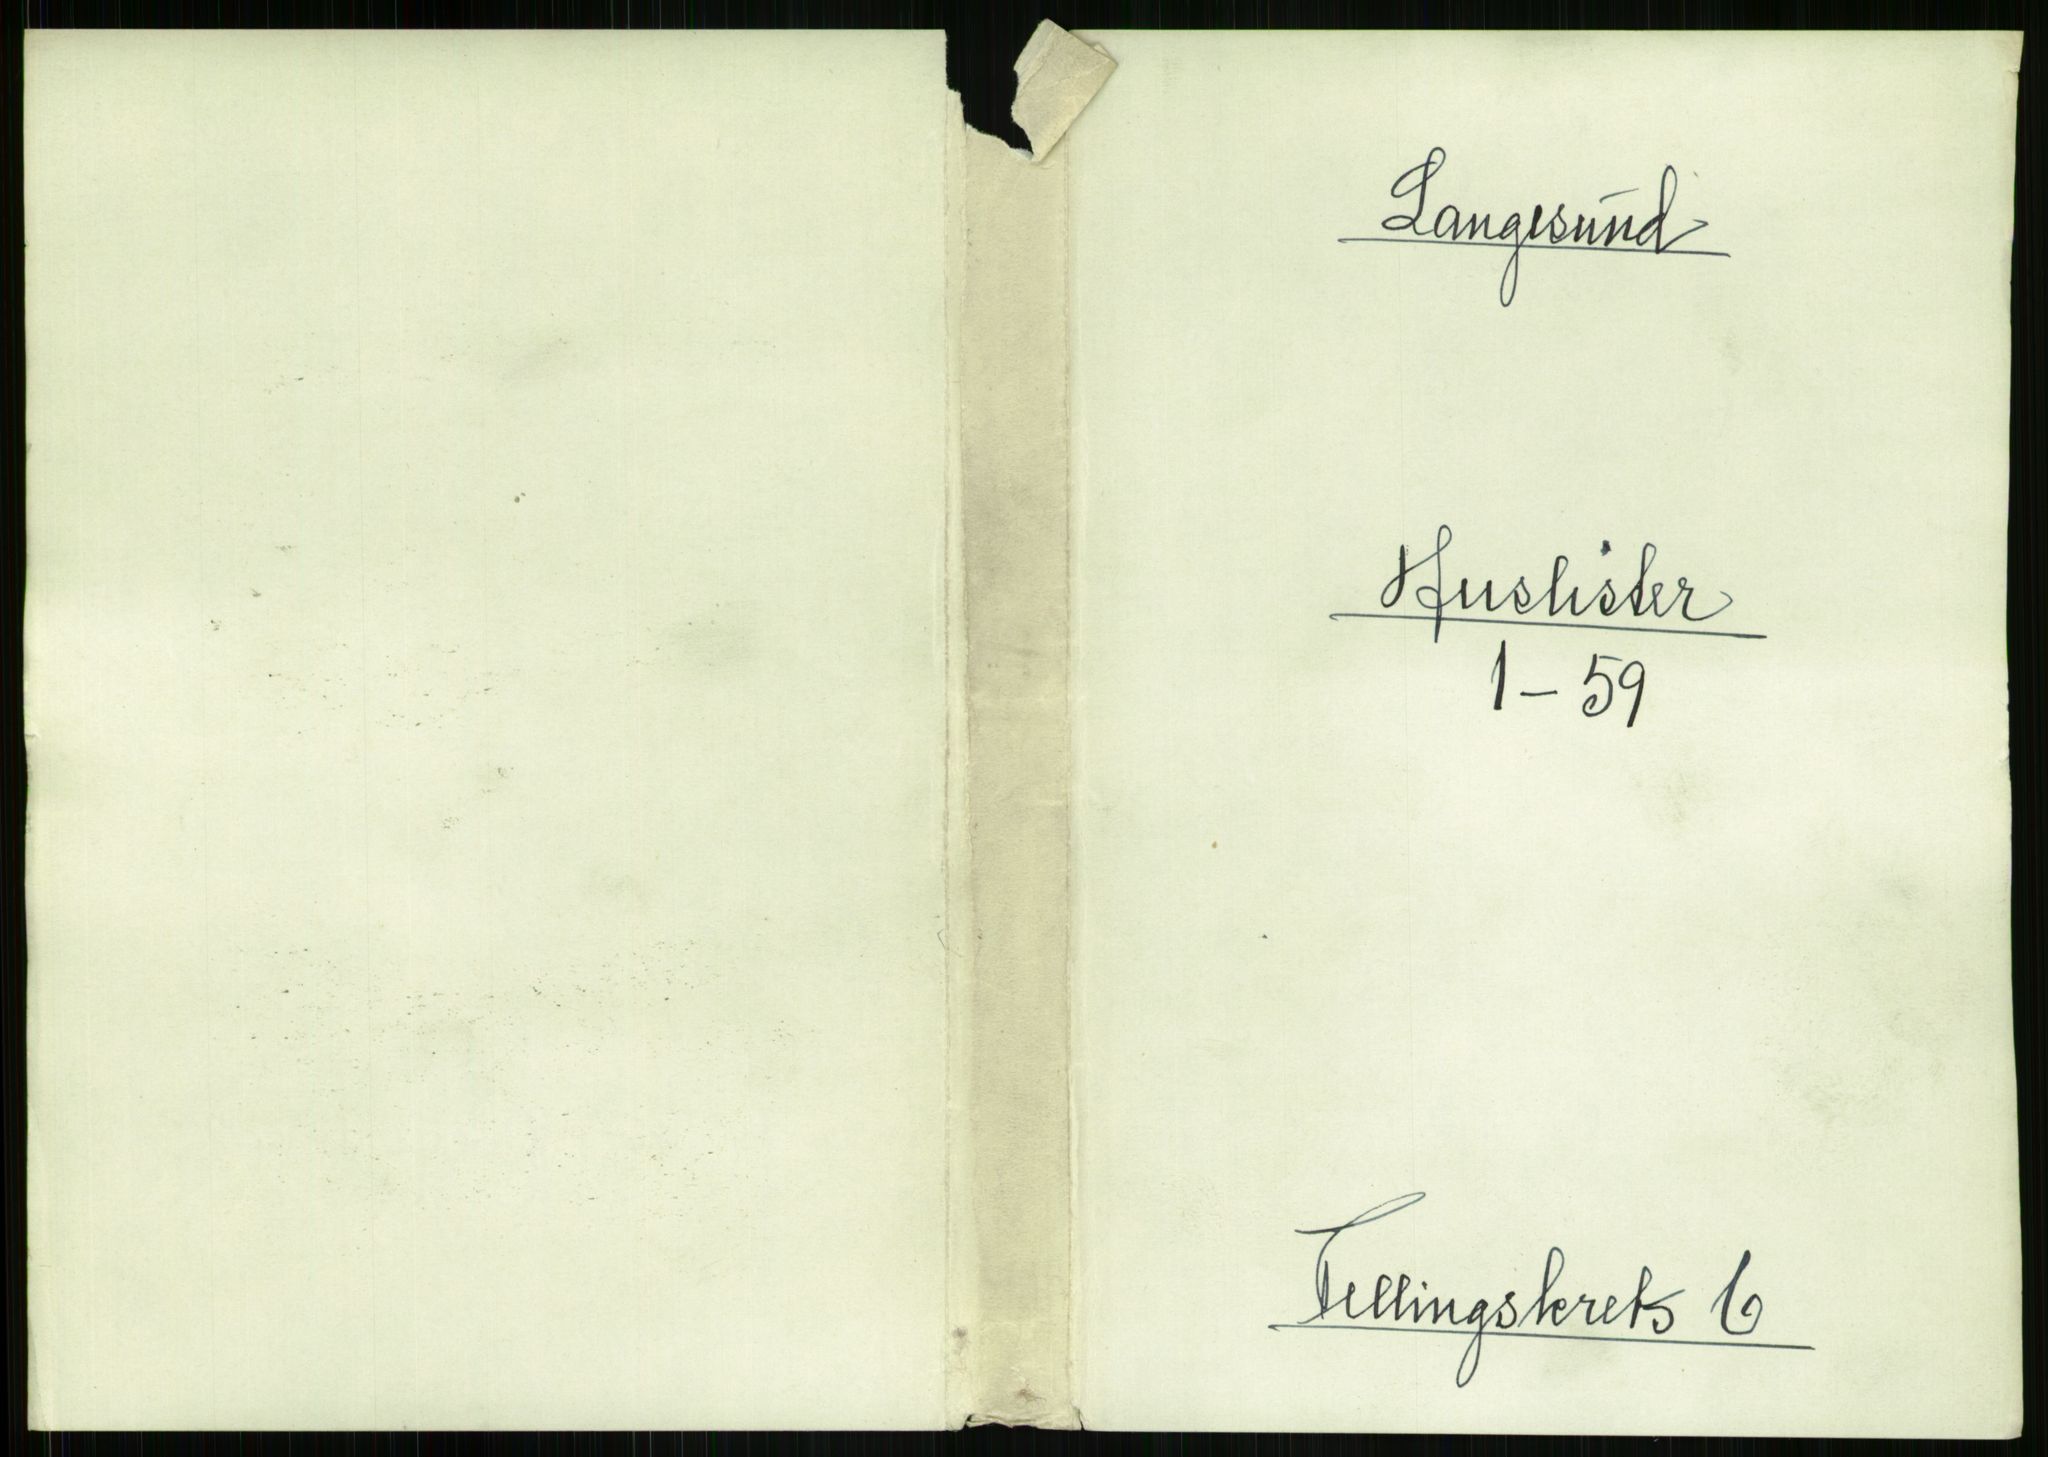 Langesund
Huslister
1-59
Tellingskrets 6